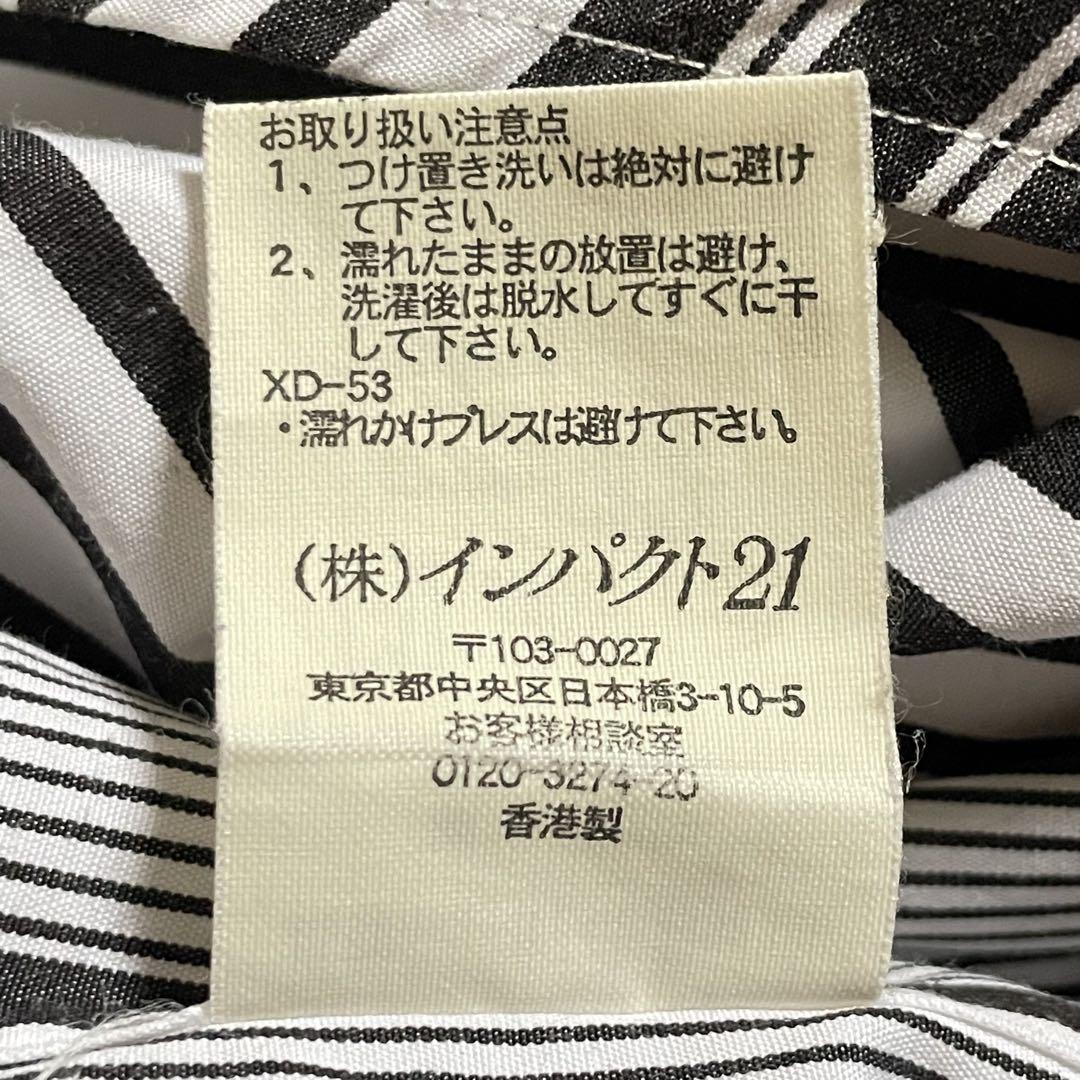 お取り扱い注意点
1、つけ置き洗いは絶対に避け
て下さい。
2、濡れたままの放置は避け、
洗濯後は脱水してすぐに干
して下さい。
XD-53
・濡れかけプレスは避けて下さい。
(株)インパクト21
〒103-0027
東京都中央区日本橋3-10-5
お客様相談室
0120-3274-20
香港製